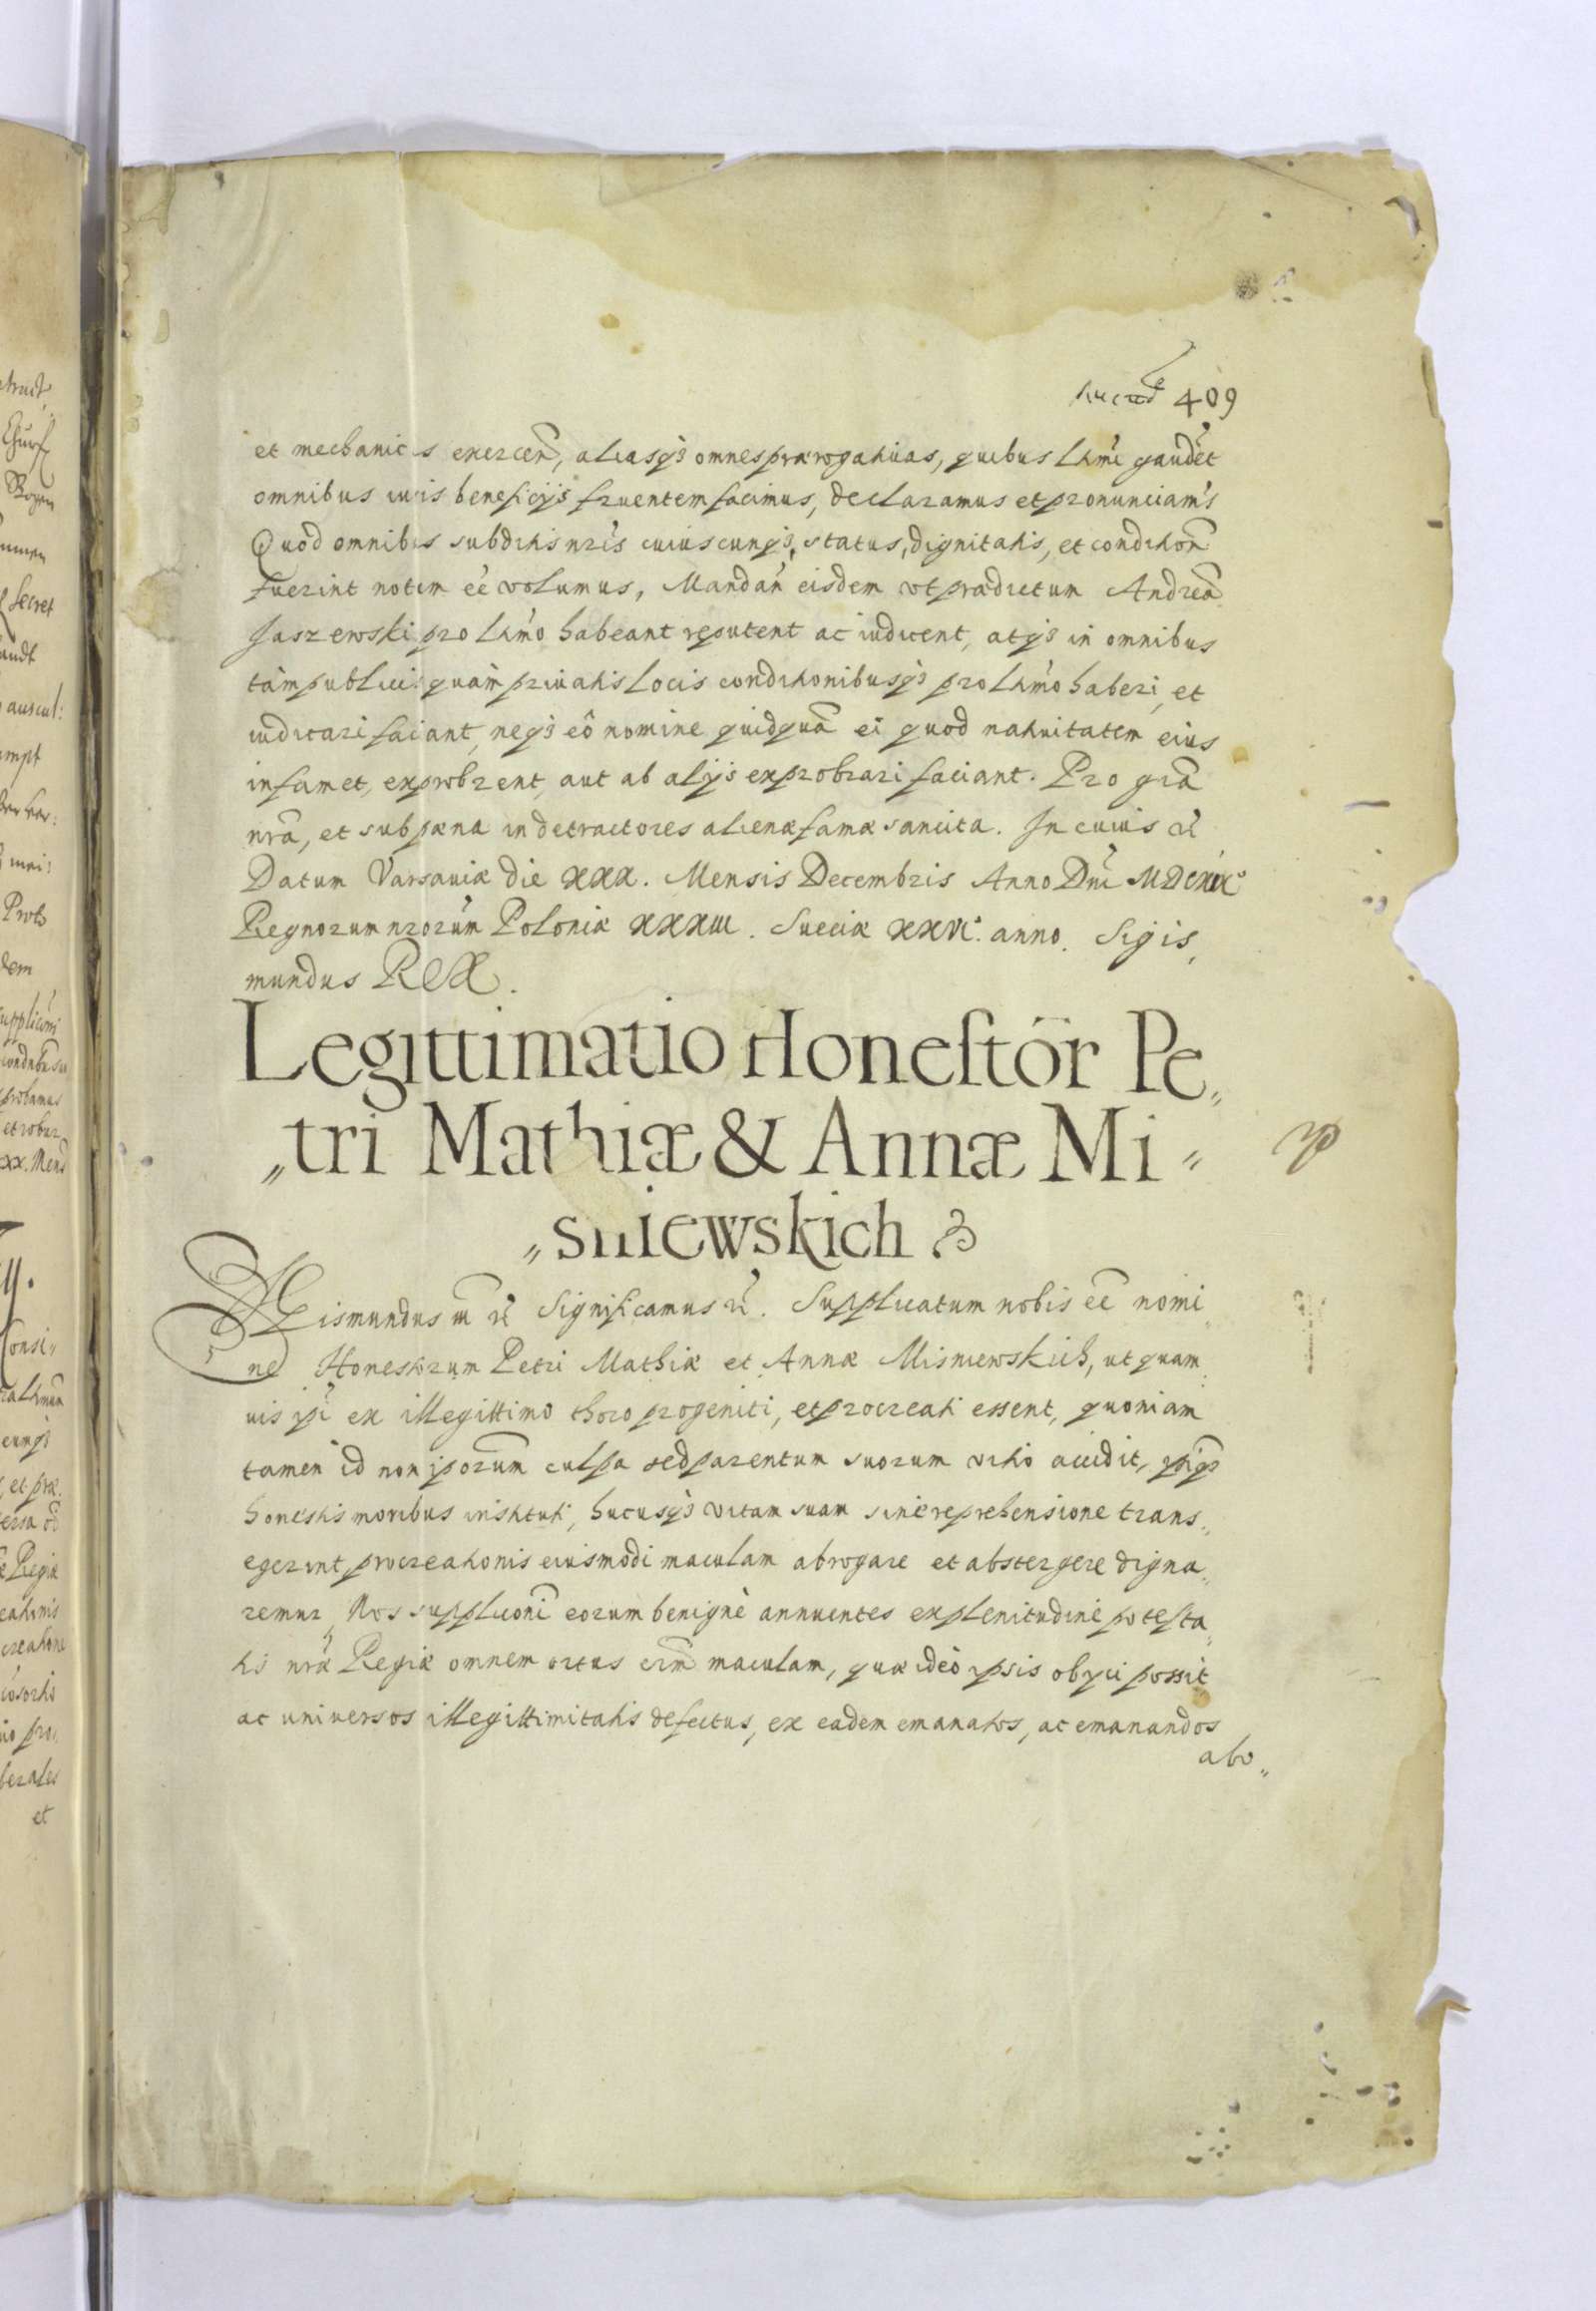 409
et mechanicas exercen̄, aliasq3 omnes prærogatiuas, quibus Lt̄mi gaudēt
omnibus iuris beneficijs fruentem facimus, declaramus et pronunciam's
Quod omnibus subditis nr̄is cuiuscunq3, status, dignitatis, et condition̄
fuerint notum eē volumus, Mandan̄ eisdem vt prædictum Andreā
Jaszewski pro Lt̄mo habeant reputent ac iudicent, atq3 in omnibus
tàm publicis quàm priuatis Locis conditionibusq3 pro Lt̄mo haberi, et
iudicari faciant, neq3 eô nomine quidquā ei quod natiuitatem eius
infamet, exprobrent, aut ab alijs exprobrari faciant. Pro gr̄a
nr̄a, et sub pœna in detractores alienæ famæ sancita. In cuius rei
Datum Varsauiæ die XXX. Mensis Decembris Anno Dn̄i MDCXIX°
Regnorum nr̄orum Poloniæ XXXIII. Sueciæ XXVI. anno. Sigis,
mundus Rex.
Legittimatio Honestōr Pe„
„tri Mathiæ & Annæ Mi„
„sniewskich
Sigismundus III r̄t Significamus r̄t. Supplicatum nobis eē nomi„
ne Honestorum Petri Mathiæ et Annæ Misniewskich, ut quam„
uis ip̄i ex illegittimo thoro progeniti, et procreati essent, quoniam
tamen id non ip̄orum culpa sed parentum suorum vitio accidit, ip̄iq3
honestis moribus instituti, hucusq3 vitam suam sine reprehensione trans„
egerint, procreationis eiusmodi maculam abrogare et abstergere digna„
remur, Nos supplicōni eorum benignè annuentes ex plenitudine potesta„
tis nr̄æ Regiæ omnem ortus eor̄m maculam, quæ ideò ipsis obijci possit
ac uniuersos illegittimitatis defectus, ex eadem emanatos, ac emanandos
abo„